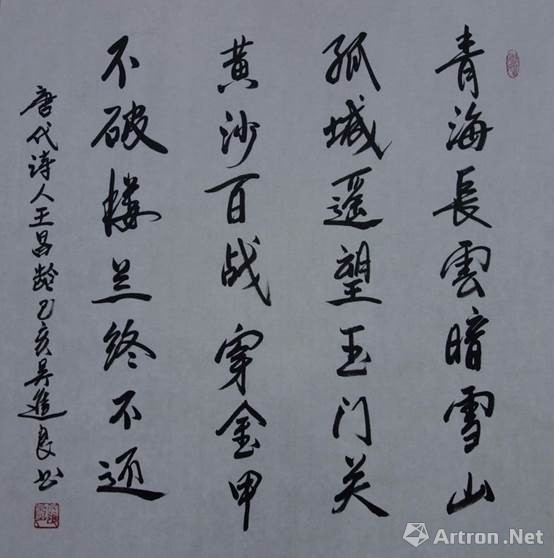 青海長雲暗雪山
孤城遥望玉门关
黄沙百战穿金甲
不破楼兰终不还
唐代诗人王昌龄乙亥吴進良书
Artron.Net